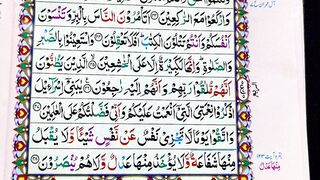 وَارْكَعُوْا مَعَ الرّٰكِعِيْنَ ۝ اَتَاْمُرُوْنَ النَّاسَ بِالْبِرِّ وَتَنْسَوْنَ
اَنْفُسَكُمْ وَاَنْتُمْ تَتْلُوْنَ الْكِتٰبَ ؕ اَفَلَا تَعْقِلُوْنَ ۝ وَاسْتَعِيْنُوْا بِالصَّبْرِ
وَالصَّلٰوةِ ؕ وَاِنَّهَا لَكَبِيْرَةٌ اِلَّا عَلَى الْخٰشِعِيْنَ ۝ الَّذِيْنَ يَظُنُّوْنَ
اَنَّهُمْ مُّلٰقُوْا رَبِّهِمْ وَاَنَّهُمْ اِلَيْهِ رٰجِعُوْنَ ۝ يٰبَنِيْٓ اِسْرَآءِيْلَ
اذْكُرُوْا نِعْمَتِيَ الَّتِيْٓ اَنْعَمْتُ عَلَيْكُمْ وَاَنِّيْ فَضَّلْتُكُمْ عَلَى الْعٰلَمِيْنَ ۝
وَاتَّقُوْا يَوْمًا لَّا تَجْزِيْ نَفْسٌ عَنْ نَّفْسٍ شَيْـًٔا وَّلَا يُقْبَلُ
مِنْهَا شَفَاعَةٌ وَّلَا يُؤْخَذُ مِنْهَا عَدْلٌ وَّلَا هُمْ يُنْصَرُوْنَ ۝